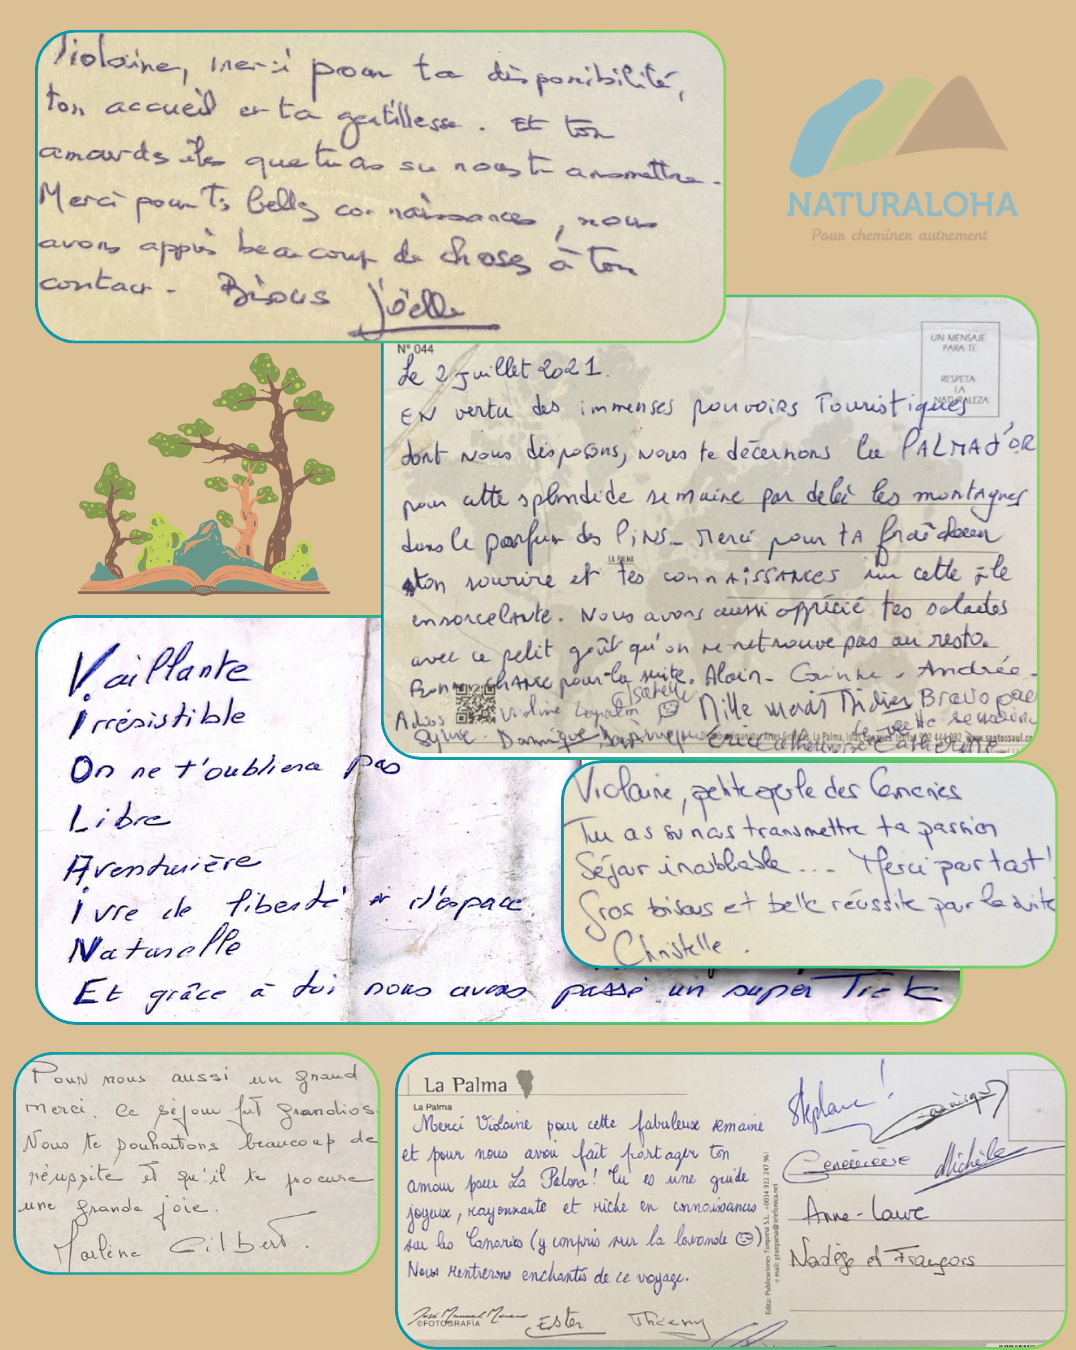 Violaine, merci pour ta disponibilité,
ton accueil et ta gentillesse. Et ton
amour des îles que tu as su nous transmettre.
Merci pour tes belles connaissances, nous
avons appris beaucoup de choses à ton
contact. Bisous Joëlle
NATURALOHA
Pour cheminer autrement
Nº 044
UN MENSAJE
PARA TI:
RESPETA
LA
NATURALEZA
Le 2 juillet 2021.
EN vertu des immenses pouvoirs Touristiques
dont nous disposons, nous te décernons la PALMA d'OR
pour cette splendide semaine par delà les montagnes
dans le parfum des PINS_ Merci pour ta fraîcheur
ton sourire et tes connAISSANCES sur cette île
ensorcelante. Nous avons aussi apprécié tes salades
avec ce petit goût qu'on ne retrouve pas au resto.
Bonne CHANCE pour la suite. Alain - Corinne - Andrée -
Isabelle
Mille mercis Didier Bravo
Adios
Sylvie - Dominique
Eric Catherine Catherine
Vaillante
Irrésistible
On ne t'oubliera pas
Libre
Aventurière
Ivre de liberté et d'espace
Naturelle
Et grâce à toi nous avons passé un super Trek
Violaine, petite perle des Canaries
Tu as su nous transmettre ta passion
Séjour inoubliable ... Merci pour tout!
Gros bisous et belle réussite pour la suite
Christelle.
Pour nous aussi un grand
merci. Ce séjour fut grandiose.
Nous te souhaitons beaucoup de
réussite et qu'il te procure
une grande joie.
Marlène Gilbert.
La Palma
La Palma
Merci Violaine pour cette fabuleuse semaine
et pour nous avoir fait partager ton
amour pour La Palma! Tu es une guide
joyeuse, rayonnante et riche en connaissances
sur les Canaries (y compris sur la lavande)
Nous rentrerons enchantés de ce voyage.
José Manuel Moreno
©FOTOGRAFÍA
Ester Thierry
Stéphane!
Geneviève Michèle
Anne-Laure
Nadège et François
Edita: Publicaciones Turquesa S.L. +0034 922 247 961
e mail: pturquesa@telefonica.net